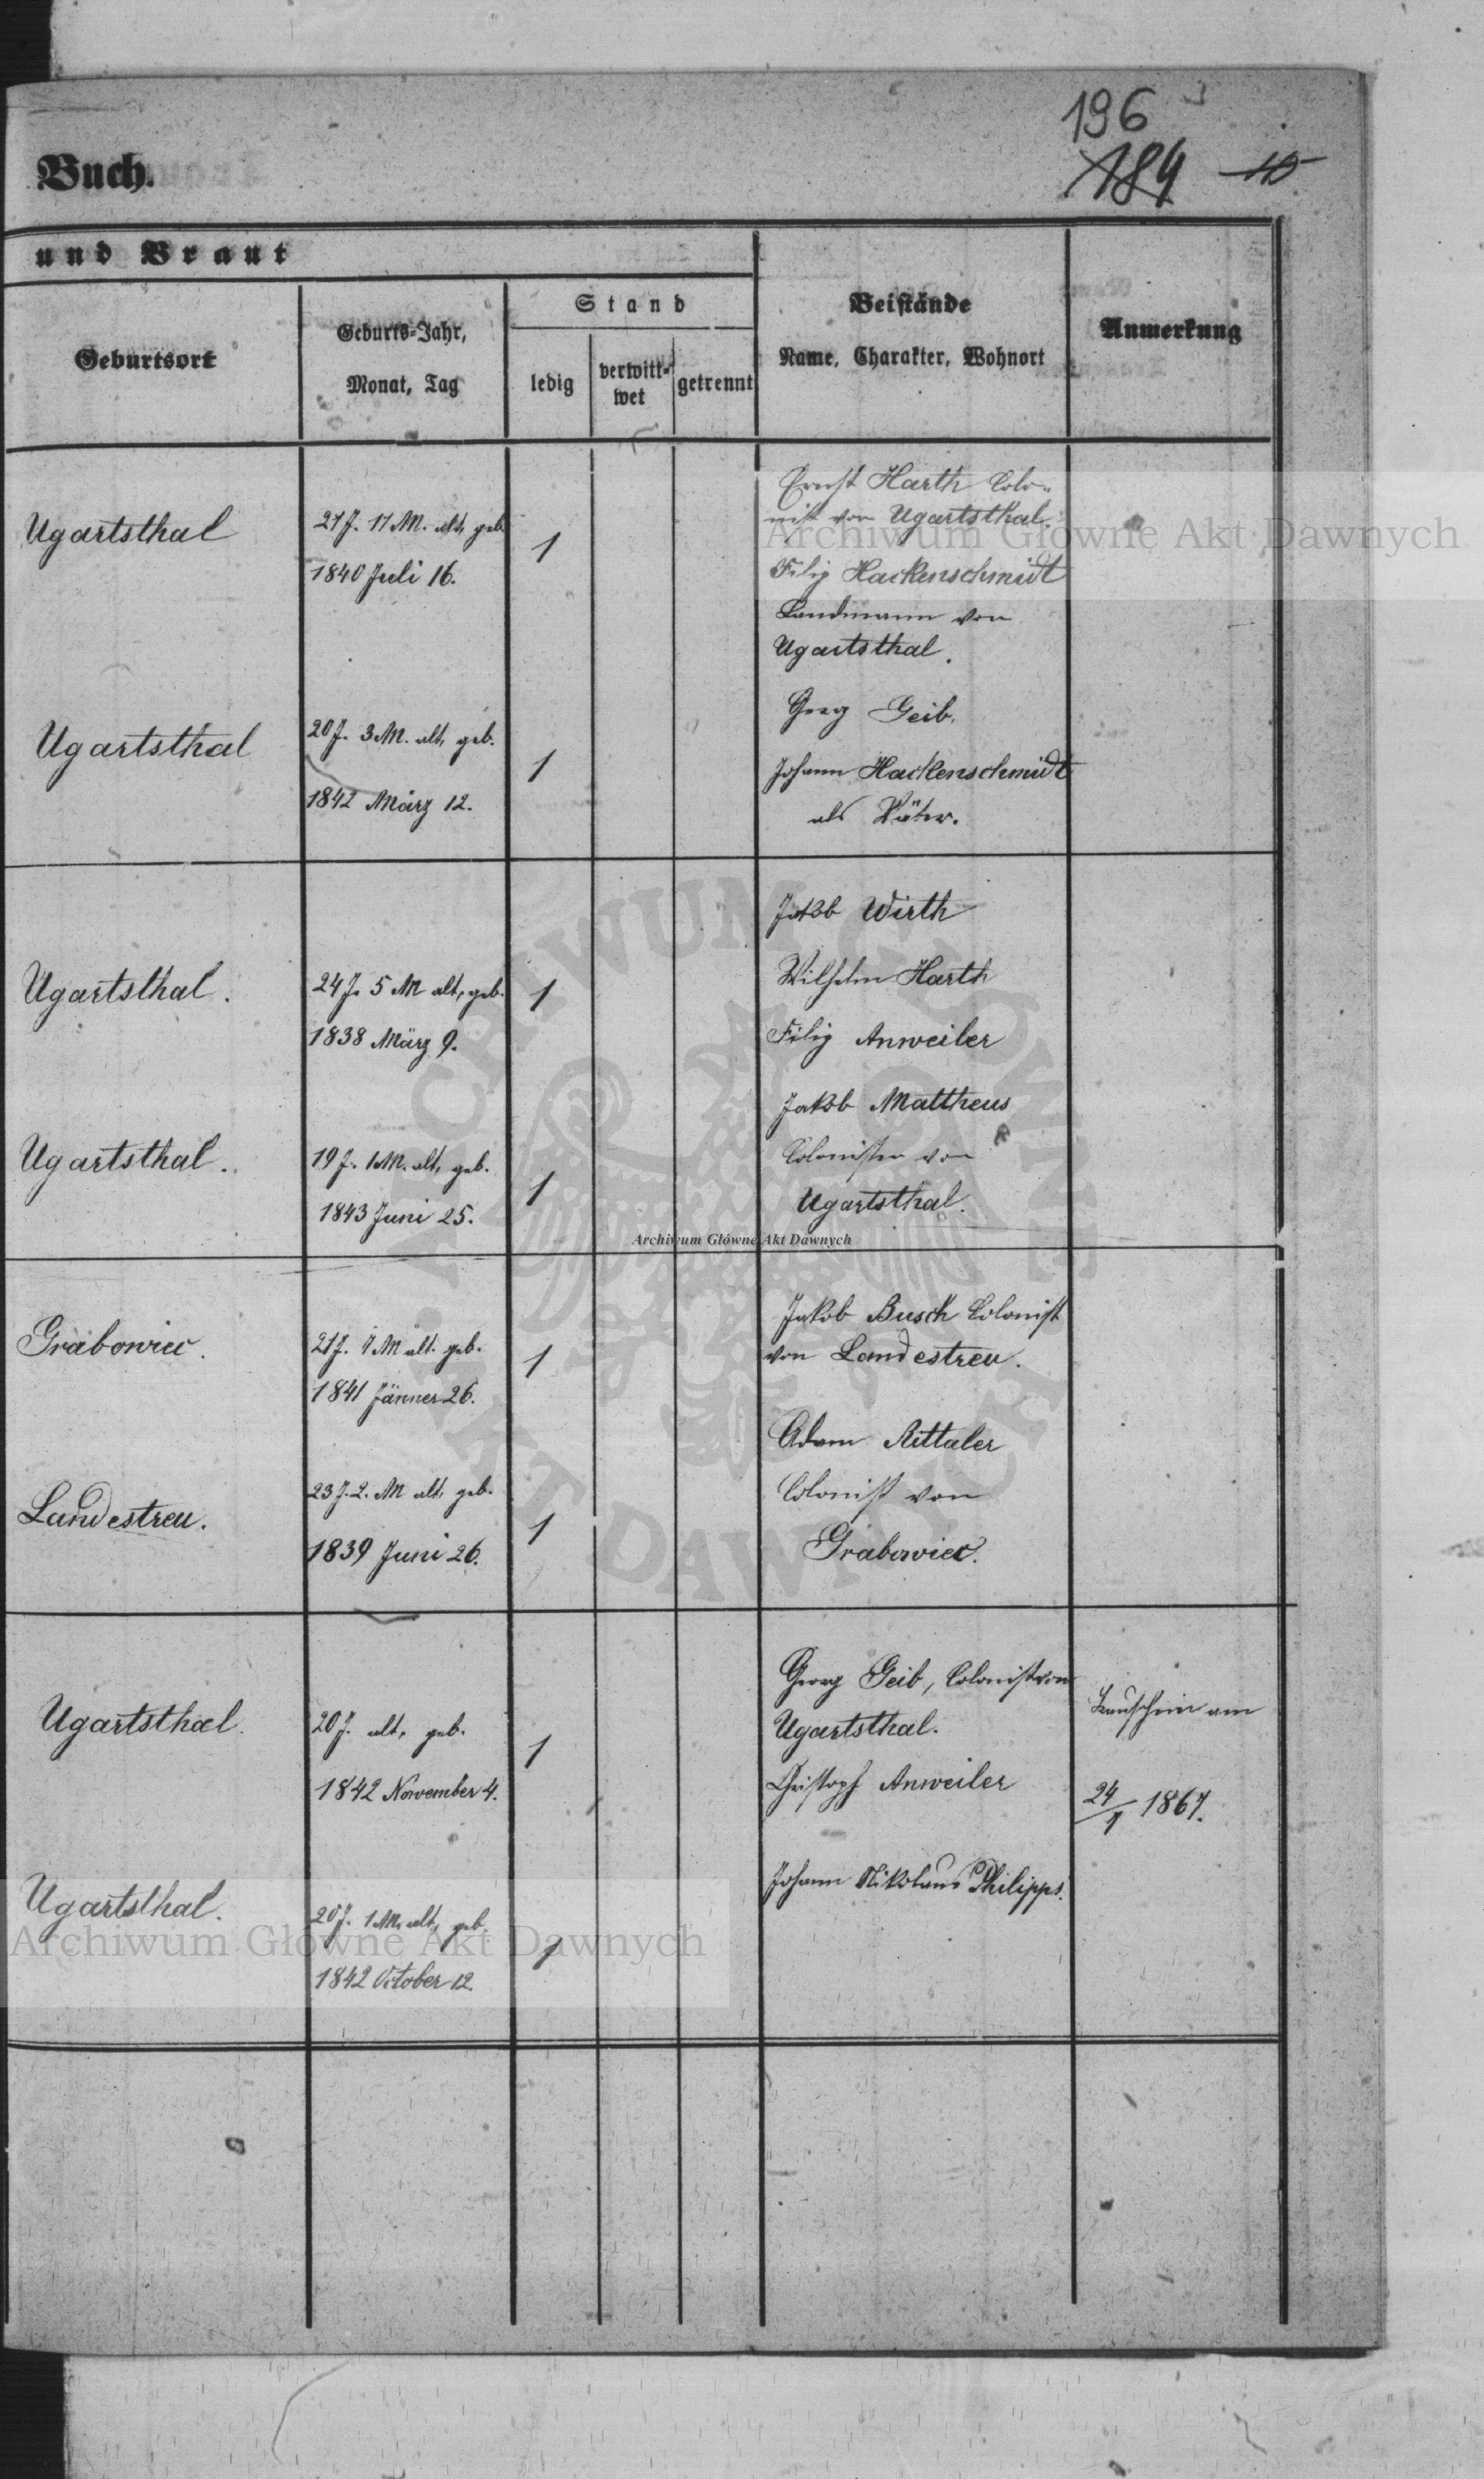 196
184 10
Buch.
und Braut
Geburtsort
Geburts-Jahr,
Monat, Tag
Stand
ledig
verwitt-
wet
getrennt
Beistände
Name, Charakter, Wohnort
Anmerkung
Ugartsthal
21 J. 11 M. alt, geb.
1840 Juli 16.
1
Ernst Harth Colo-
nist von Ugartsthal.
Filip Hackenschmidt
Landmann von
Ugartsthal.
Ugartsthal
20 J. 3 M. alt, geb.
1842 März 12.
1
Georg Geib.
Johann Hackenschmidt
als Väter.
Ugartsthal.
24 J. 5 M alt, geb.
1838 März 9.
1
Jakob Wirth
Wilhelm Harth
Filip Anweiler
Ugartsthal.
19 J. 1 M. alt, geb.
1843 Juni 25.
1
Jakob Mattheus
Colonisten von
Ugartsthal.
Grabowiec.
21 J. 7 M alt. geb.
1841 Jänner 26.
1
Jakob Busch Colonist
von Landestreu.
Landestreu.
23 J. 2. M alt, geb.
1839 Juni 26.
1
Adam Rittaler
Colonist von
Grabowiec.
Ugartsthal.
20 J. alt, geb.
1842 November 4.
1
Georg Geib, Colonist von
Ugartsthal.
Christoph Anweiler
Johann Nikolaus Philipps.
Trauschein am
24/1 1867.
Ugartsthal.
20 J. 1 M. alt, geb.
1842 October 12.
1
Archiwum Główne Akt Dawnych
Archiwum Główne Akt Dawnych
Archiwum Główne Akt Dawnych